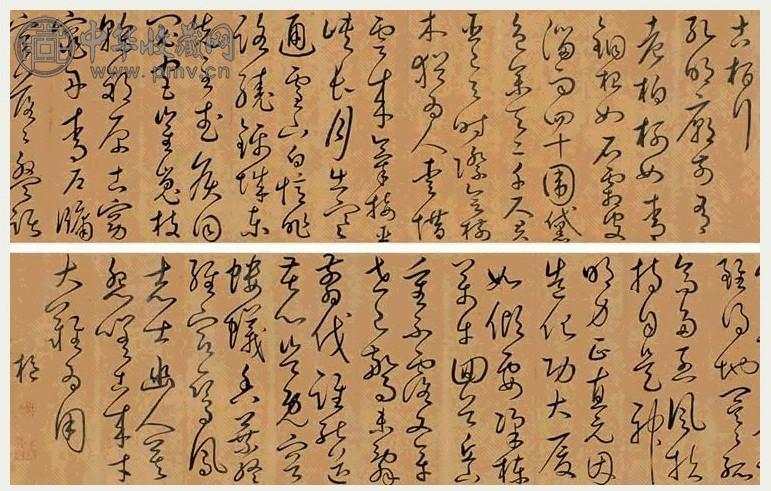 中华收藏网
www.pmv.cn
古柏行
孔明廟前有
老柏柯如青
銅根如石霜皮
溜雨四十圍黛
色參天二千尺君
臣已與時際會樹
木猶為人愛惜
雲來氣接巫
峽長月出寒
通雪山白憶昨
路繞錦城東
先主武侯同
閟宮崔嵬枝
幹郊原古窈
窕丹青戶牖
空落落盤踞
雖得地冥冥孤
高多烈風扶
持自是神
明力正直元因
造化功大廈
如傾要梁棟
萬牛回首丘山
重不露文章
世已驚未辭
剪伐誰能送
苦心豈免容
螻蟻香葉終
經宿鸞鳳
志士幽人莫
怨嗟古來才
大難為用